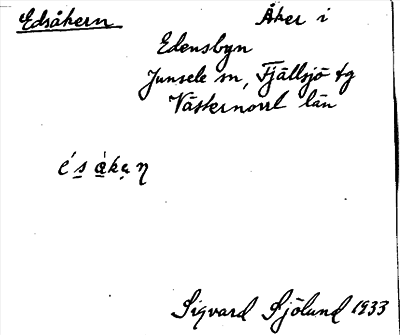 Edsåkern Åker i
Edensbyn
Junsele sn, Fjällsjö tg
Västernorrl län
é s å̀ k ą η
Sigvard Sjölund 1933